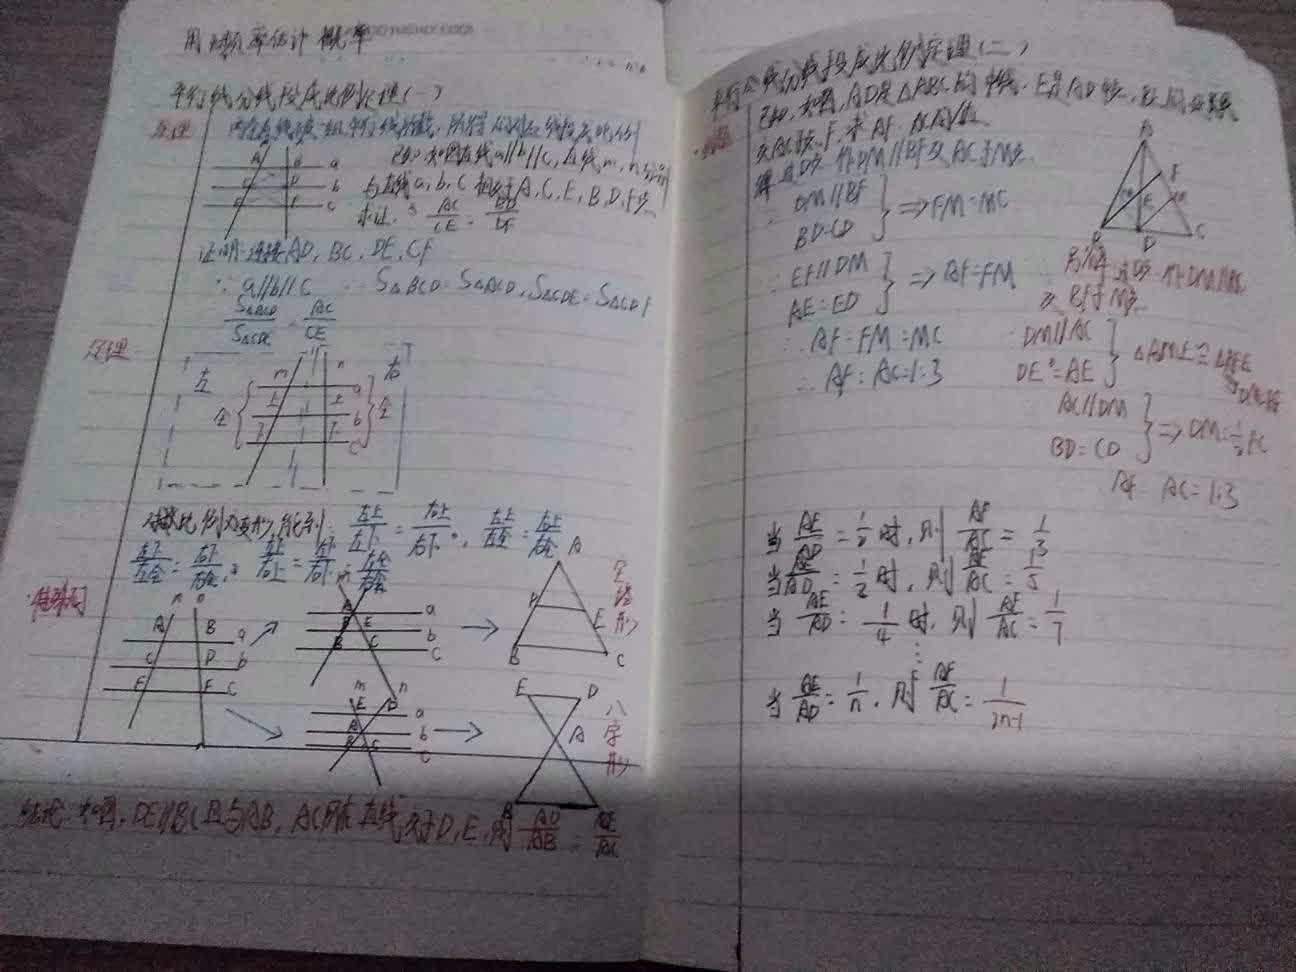 用频率估计概率
平行线分线段成比例定理(一)
原理 两条直线被一组平行线所截，所得的对应线段成比例
已知：如图直线a∥b∥c，直线m，n分别
与直线a，b，c相交于A，C，E，B，D，F点
求证：AC/CE = BD/DF
A B a
C D b
E F c
证明：连接AD，BC，DE，CF
∵ a∥b∥c ∴ S△BCD=S△ACD，S△CDE=S△CDF
S△ACD/S△CDE = AC/CE
原理
左 m n 右
全 上 上 a 全
b
下 下 c
比例的变形，能得：左上/左下 = 右上/右下，左上/左全 = 右上/右全
左下/左全 = 右下/右全，左上/右上 = 左下/右下 = 左全/右全
m n
A B a
C D b
E F c
m
A a
D E b
B C c
n
A
D E
B C
全
形
m n
E D a
A b
B C c
E D
A
B
八
字
形
结论：如图，DE∥BC且与AB，AC所在直线交于D，E，则 AD/AB = AE/AC
平行线分线段成比例定理(二)
已知，如图，AD是△ABC的中线，E是AD
交AC于F，求AF：AC的值
解：过D 作DM∥BF交AC于M
DM∥BF
BD=CD
⇒FM=MC
EF∥DM
AE=ED
⇒AF=FM
∴ AF=FM=MC
∴ AF：AC=1:3
A
F
M E M
B D C
另解 过D 作DM∥AC
交BF于M
DM∥AC
DE=AE
AC∥DM
BD=CD
⇒DM=½FC
AF：AC=1:3
当 AE/AD = 1/2 时，则 AF/AC = 1/3
当 AE/AD = 1/2 时，则 AF/AC = 1/5
当 AE/AD = 1/4 时，则 AF/AC = 1/7
⋮
当 AE/AD = 1/n，则 AF/AC = 1/2n-1